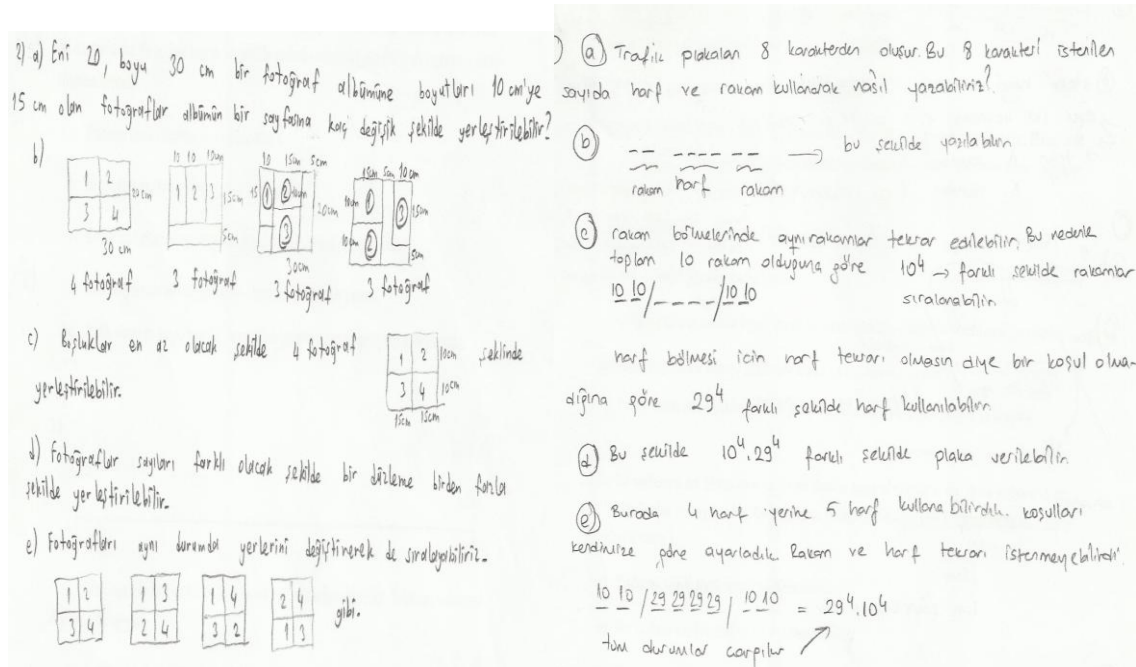 2) a) Eni 20, boyu 30 cm bir fotoğraf albümüne boyutları 10 cm'ye
15 cm olan fotoğraflar albümün bir sayfasına kaç değişik şekilde yerleştirilebilir?
b)
1 2
3 4
20cm
30 cm
4 fotoğraf
10 10 10cm
1 2 3
15cm
5cm
3 fotoğraf
10 15cm 5cm
15 1 2
3
20cm
30cm
3 fotoğraf
15cm 5cm 10cm
10cm 1 3 15cm
10cm 2
5cm
3 fotoğraf
c) Boşluklar en az olacak şekilde 4 fotoğraf
1 2 10cm
3 4 10cm
15cm 15cm
şeklinde
yerleştirilebilir.
d) Fotoğraflar sayıları farklı olacak şekilde bir düzleme birden fazla
şekilde yerleştirilebilir.
e) Fotoğrafları aynı durumda yerlerini değiştirerek de sıralayabiliriz.
1 2
3 4
1 3
2 4
1 4
3 2
2 4
1 3
gibi.
a) Trafik plakaları 8 karakterden oluşur. Bu 8 karakteri istenilen
sayıda harf ve rakam kullanarak nasıl yazabiliriz?
b) -- ---- -- → bu şekilde yazılabilir
rakam harf rakam
c) rakam bölmelerinde aynı rakamlar tekrar edilebilir. Bu nedenle
toplam 10 rakam olduğuna göre 10⁴ → farklı şekilde rakamlar
sıralanabilir.
10 10 / _ _ _ _ / 10 10
harf bölmesi için harf tekrarı olmasın diye bir koşul olma-
dığına göre 29⁴ farklı şekilde harf kullanılabilir
d) Bu şekilde 10⁴.29⁴ farklı şekilde plaka verilebilir
e) Burada 4 harf yerine 5 harf kullanabilirdik. koşulları
kendimize göre ayarladık. Rakam ve harf tekrarı istenmeyebilirdi.
10 10 / 29 29 29 29 / 10 10 = 29⁴.10⁴
tüm durumlar çarpılır